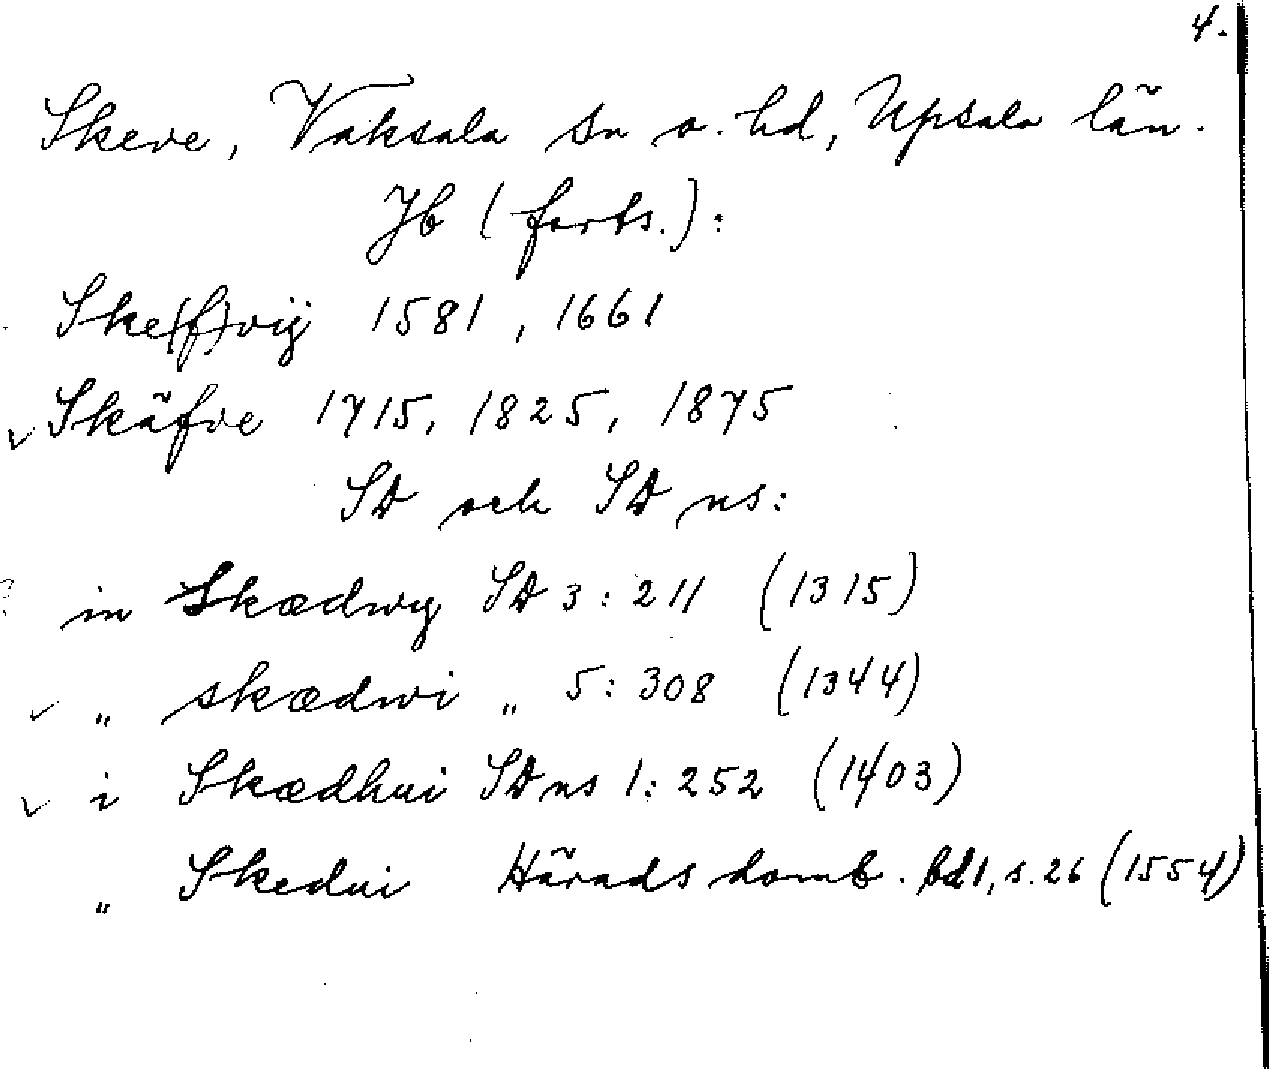 4.
Skeve, Vaksala sn o. hd, Upsala län.
Jb (forts.):
Ske(f)vij 1581, 1661
v Skäfve 1715, 1825, 1875
SD och SD ns:
? in Skædwy SD 3: 211 (1315)
v „ skædwi „ 5: 308 (1344)
v i Skædhui SD ns 1: 252 (1403)
„ Skedui Härads domb. bd 1, s. 26 (1554)